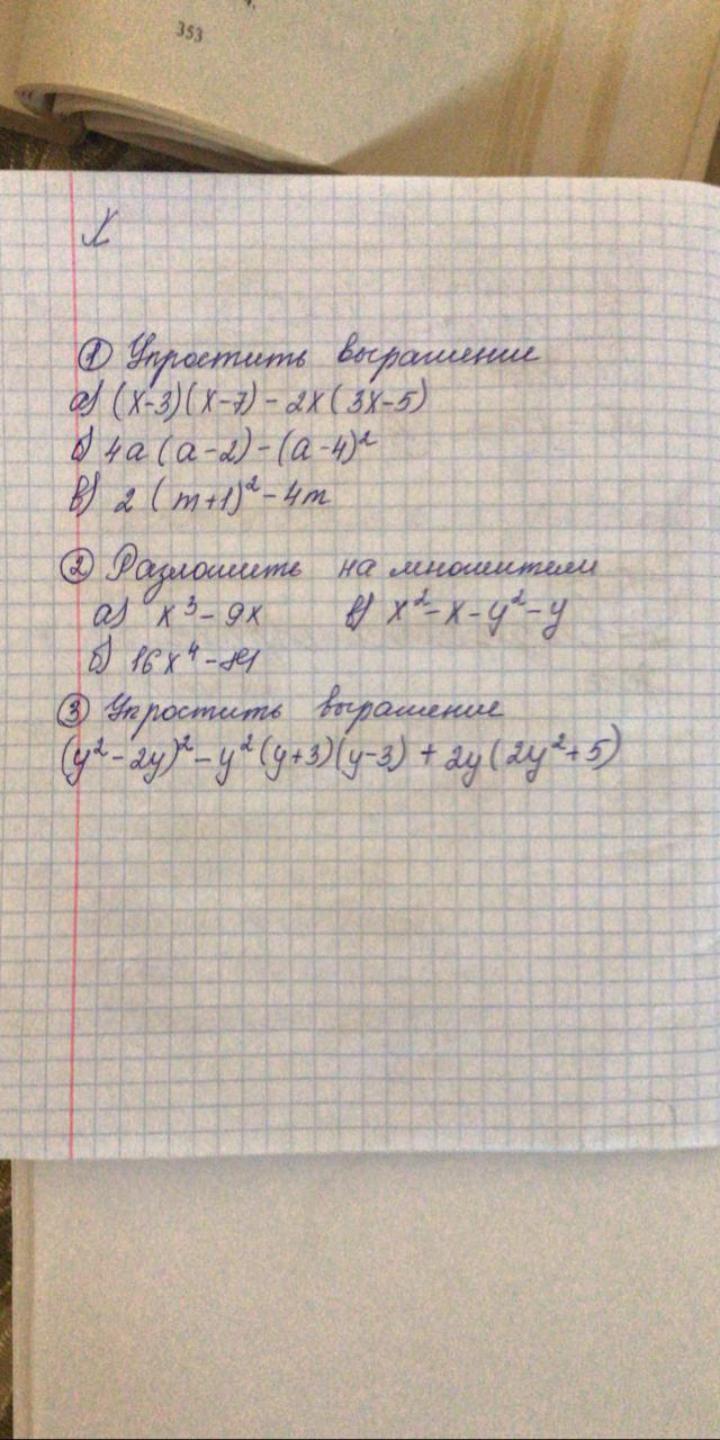 353
① Упростить выражение
а) (x-3)(x-7) - 2x(3x-5)
б) 4a(a-2) - (a-4)²
в) 2(m+1)² - 4m
② Разложить на множители
а) x³ - 9x в) x² - x - y² - y
б) 16x⁴ - 81
③ Упростить выражение
(y² - 2y)² - y²(y+3)(y-3) + 2y(2y²+5)